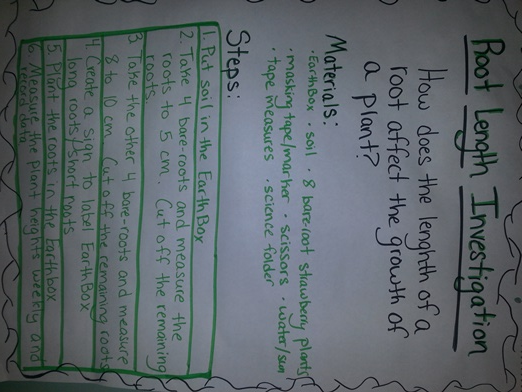 Root Length Investigation
How does the lenghth of a
root affect the growth of
a plant?
Materials:
· Earthbox · soil · 8 bareroot strawberry plants
· masking tape/marker · scissors · water/sun
· tape measures · science folder
Steps:
1. Put soil in the EarthBox
2. Take 4 bare-roots and measure the
roots to 5 cm. Cut off the remaining
roots
3. Take the other 4 bare-roots and measure
8 to 10 cm. Cut off the remaining roots
4. Create a sign to label EarthBox
long roots/short roots
5. Plant the roots in the Earthbox
6. Measure the plant heights weekly and
record data